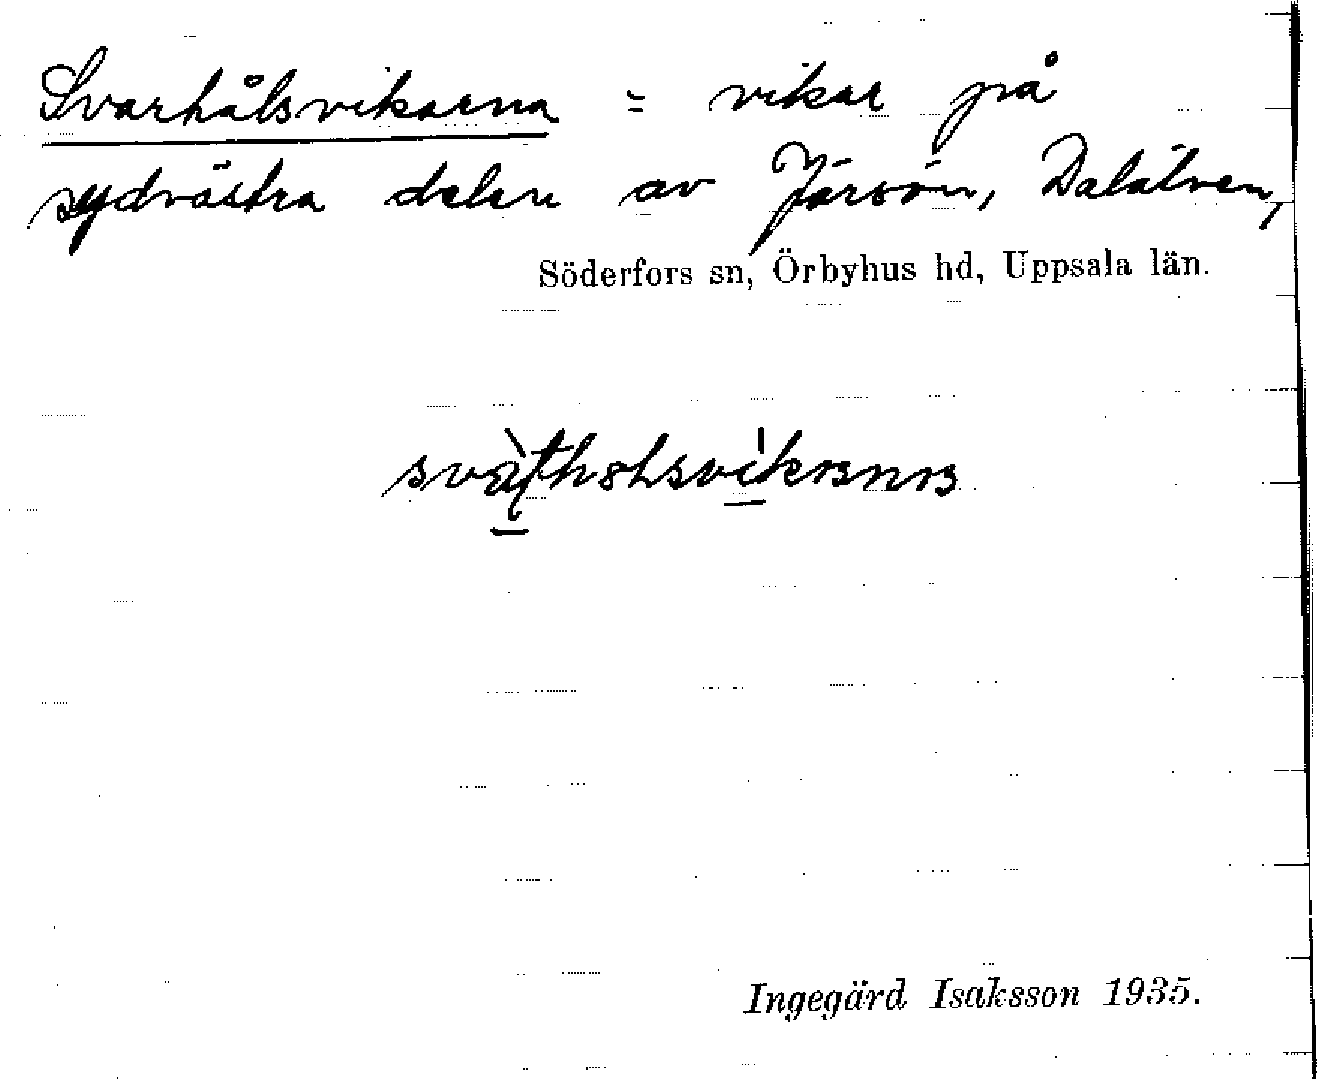 Svarhålsvikarna = vikar på
sydvästra delen av Järsön, Dalälven,
Söderfors sn, Örbyhus hd, Uppsala län.
Ingegärd Isaksson 1935.